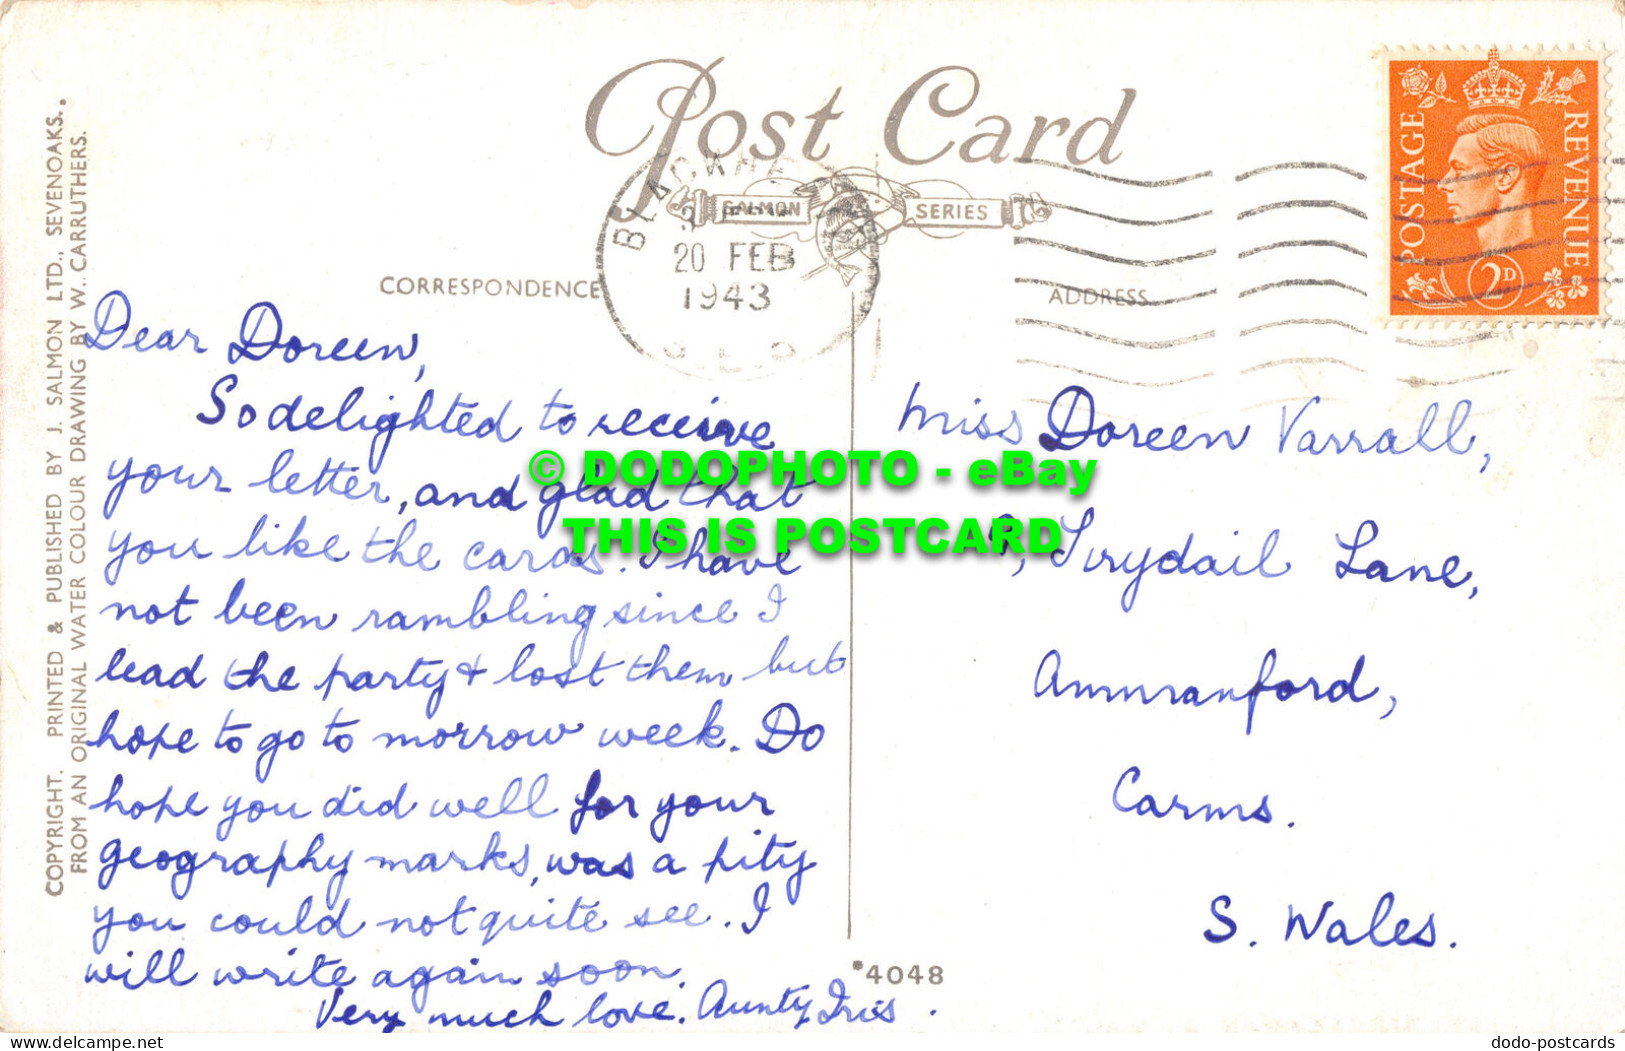 COPYRIGHT. PRINTED & PUBLISHED BY J. SALMON LTD., SEVENOAKS.
FROM AN ORIGINAL WATER COLOUR DRAWING BY W. CARRUTHERS.
Post Card
SALMON SERIES
20 FEB
1943
S.E.3
POSTAGE REVENUE
2D
CORRESPONDENCE
ADDRESS
Dear Doreen,
So delighted to receive
your letter, and glad that
you like the cards. I have
not been rambling since I
lead the party & lost them but
hope to go to morrow week. Do
hope you did well for your
geography marks, was a pity
you could not quite see. I
will write again soon.
Very much love. Aunty Iris.
Miss Doreen Varrall,
Tirydail Lane,
Ammanford,
Carms.
S. Wales.
*4048
© DODOPHOTO - eBay
THIS IS POSTCARD
delcampe.net
dodo-postcards